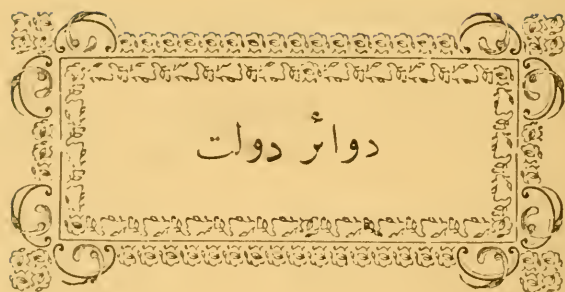 دوائر دولت